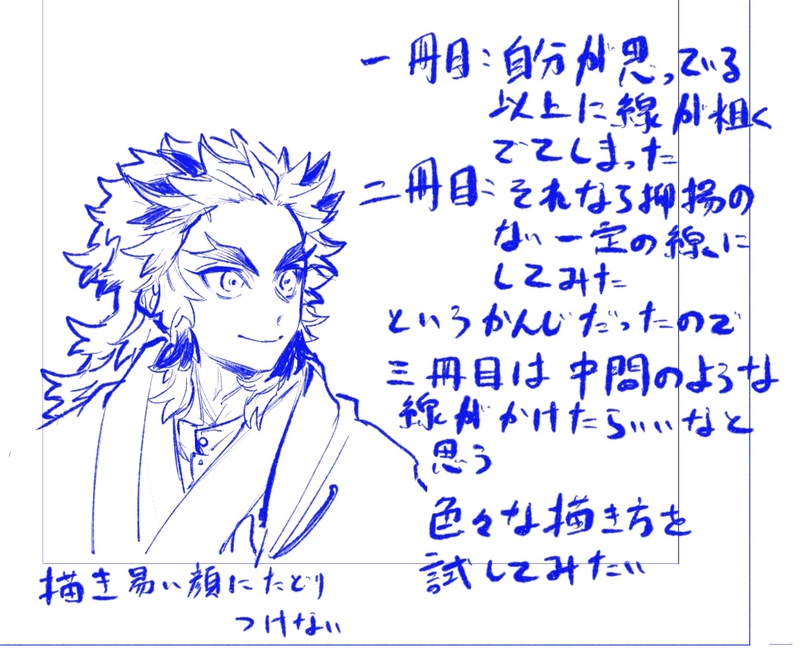 一冊目:自分が思っている
以上に線が粗く
でてしまった
二冊目:それなら抑揚の
ない一定の線に
してみた
というかんじだったので
三冊目は中間のような
線がかけたらいいなと
思う
色々な描き方を
試してみたい
描き易い顔にたどり
つけない